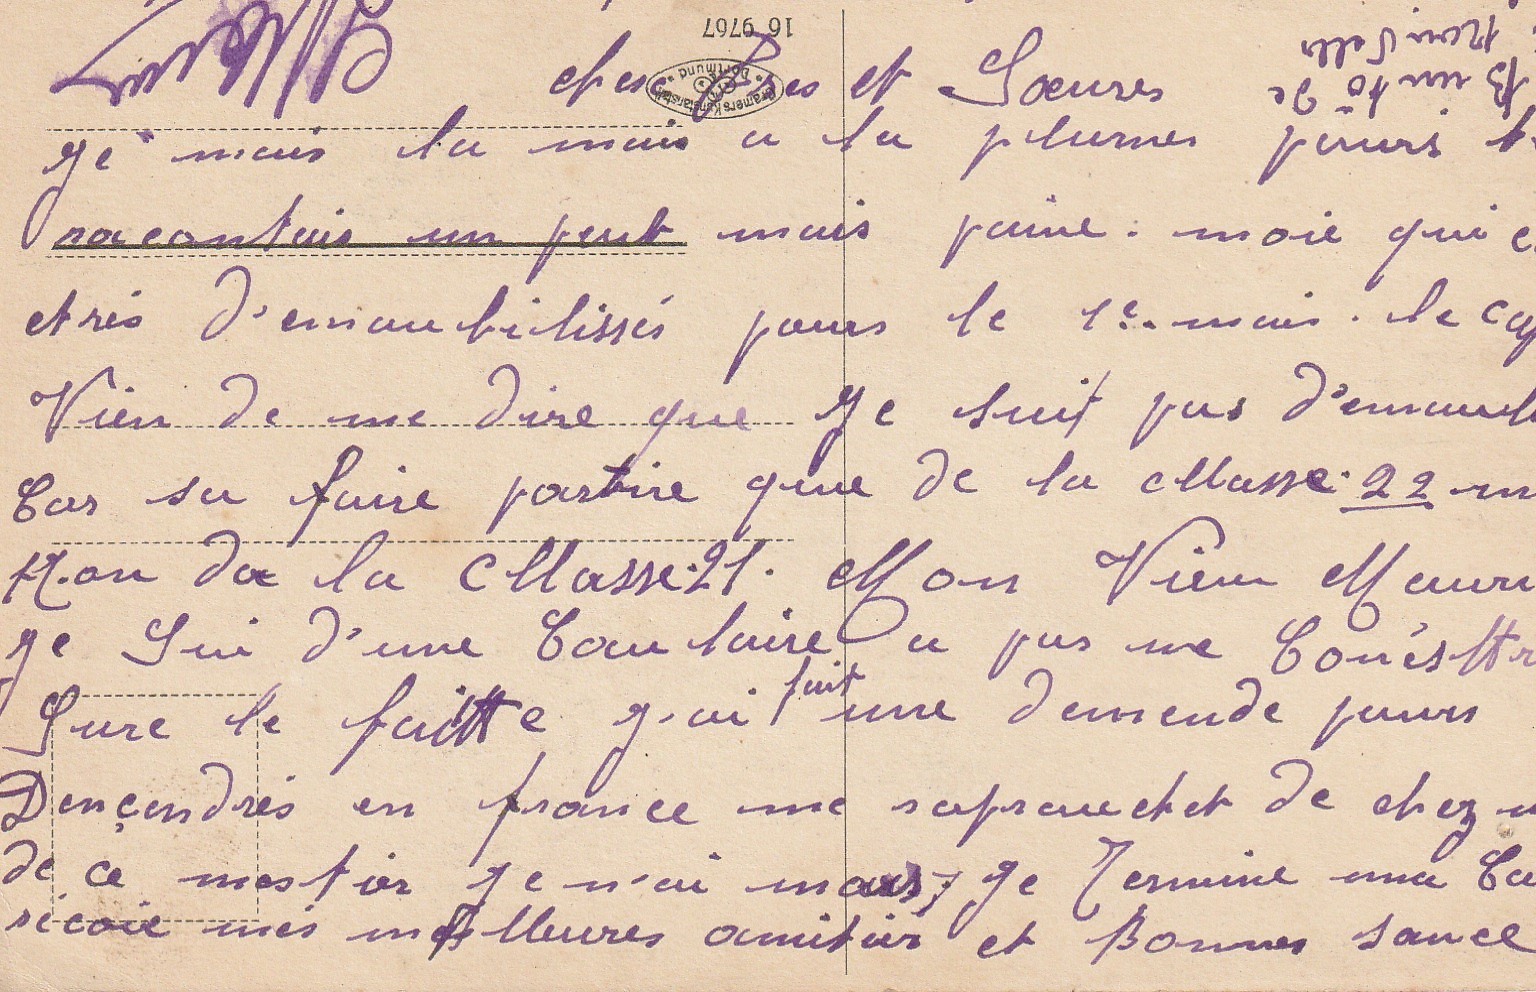 16 9767
Cramers Kunstanstalt Dortmund
cher et Sœures
ge mais la mais a la plumes pours
racontais un peut mais paine. moie qui
etrés d'emaubilissés pours le 1e.. mais. le
Vien de me dire que ge suit pas d'emaub
Cas sa faire partire que de la Classe. 22
Non da la Classe. 21. Mon Vieu Mauri
ge Sui d'une Coulaire a pas me
Sure le faitte g'ai fait une demende pours
Dençendrés en france me raprouchet de chez
de ce mestier ge n'ai mars, ge Termine ma
réçoie mes meilleures amitiér et Bonnes
Bientô ge